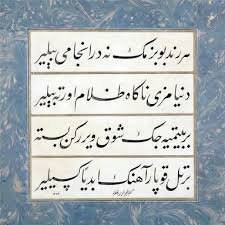 هر رند بو بزمك نه در انجامی بیلیر
دنیامزی ناگاه ظلام اورته بیلیر
بر بیتمیه جك شوق ویررکن بسته
بر تل قوپار آهنك ابدیاً کسیلیر